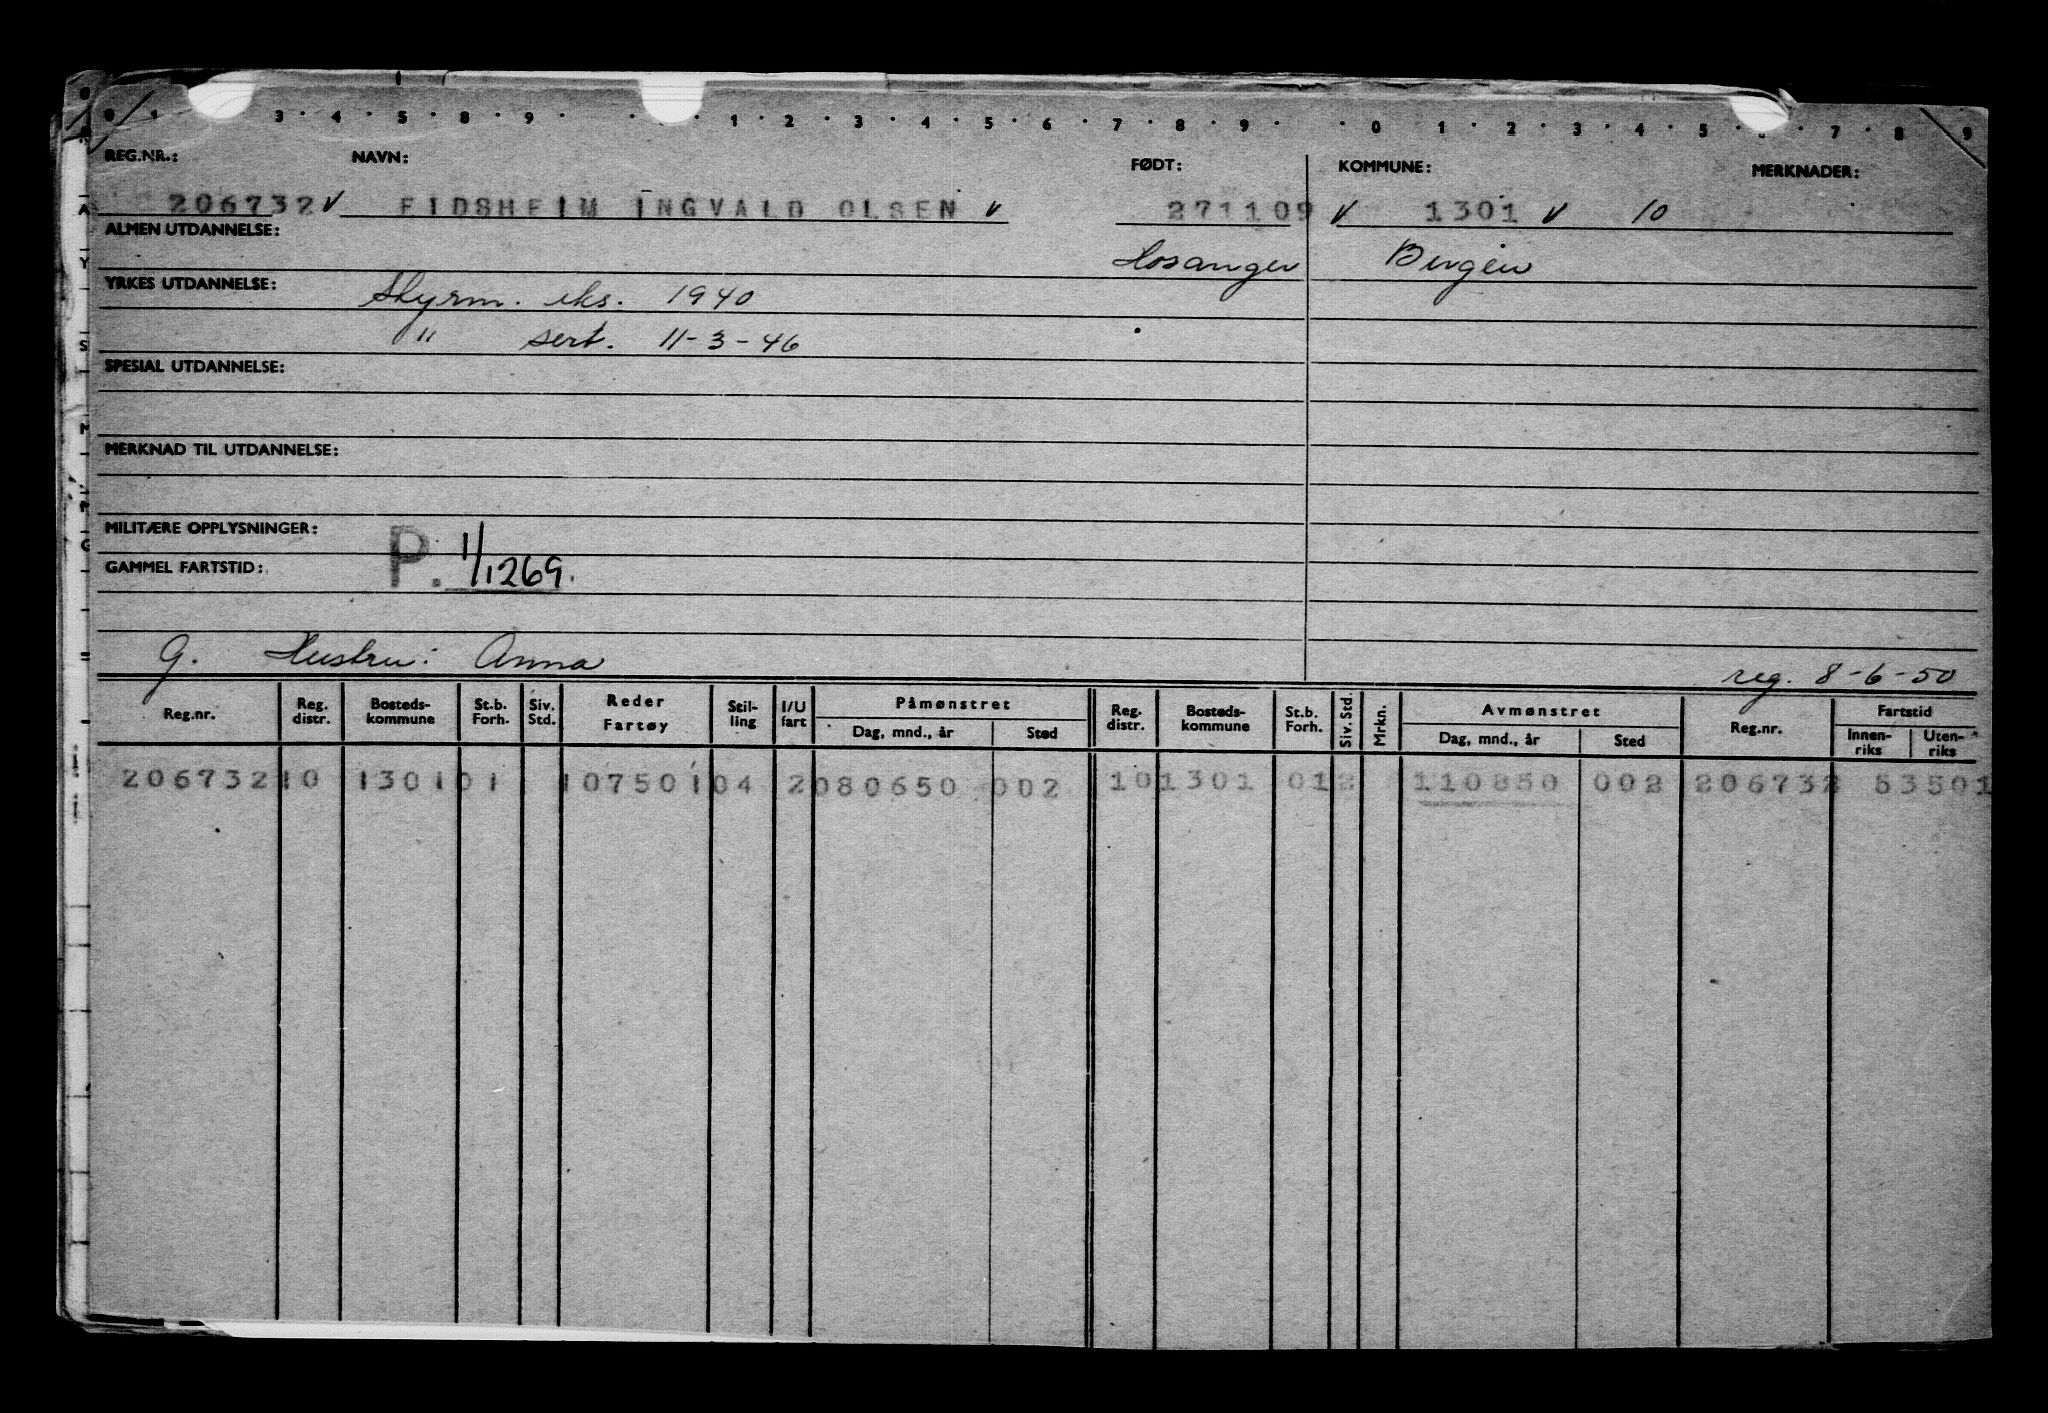 3 · 4 · 5 · 8 · 9 · · · 1 · 2 · 3 · 4 · 5 · 6 · 7 · 8 · 9 · · 0 1 · 2 · 3 · 4 · 5 · · 7 · 8 9
REG.NR.: NAVN: FØDT: KOMMUNE: MERKNADER:
206732 v EIDSHEIM INGVALD OLSEN v 271109 v 1301 v 10
ALMEN UTDANNELSE: Hosanger Bergen
YRKES UTDANNELSE: Styrm. eks. 1940
" sert. 11-3-46
SPESIAL UTDANNELSE:
MERKNAD TIL UTDANNELSE:
MILITÆRE OPPLYSNINGER:
GAMMEL FARTSTID: P. 1/1269.
G. Hustru: Anna reg. 8-6-50
Reg.nr. Reg. distr. Bosteds-kommune St.b. Forh. Siv. Std. Reder Fartøy Stil-ling I/U fart Påmønstret Dag, mnd., år Sted Reg. distr. Bosteds-kommune St.b. Forh. Siv. Std. Mrkn. Avmønstret Dag, mnd., år Sted Reg.nr. Fartstid Innen-riks Uten-riks
206732 10 1301 01 107501 04 2 080650 002 10 1301 01 2 110850 002 206732 53501